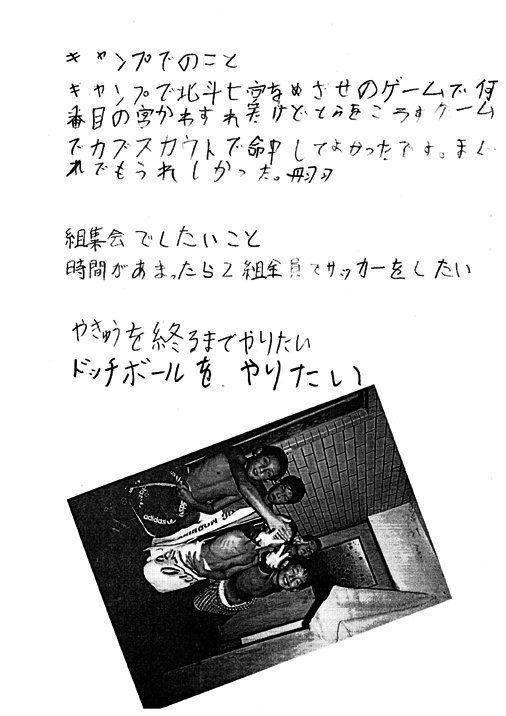 キャンプでのこと
キャンプで北斗七宮をめざせのゲームで何
番目の宮かわすれたけどとらをころすゲーム
でカブスカウトで命中してよかったです。まぐ
れでもうれしかった。
組集会でしたいこと
時間があまったら2組全員でサッカーをしたい
やきゅうを終るまでやりたい
ドッチボールを、やりたい
adidas